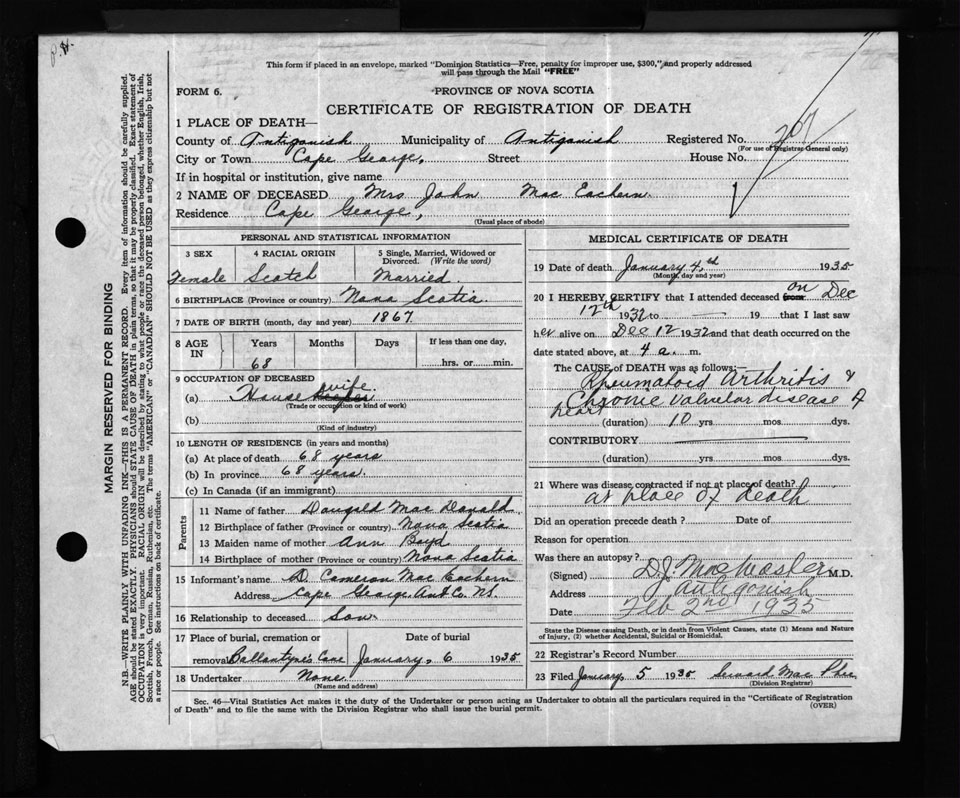 P.H.
This form if placed in an envelope, marked "Dominion Statistics—Free, penalty for improper use, $300," and properly addressed
will pass through the Mail "FREE"
FORM 6.
PROVINCE OF NOVA SCOTIA
CERTIFICATE OF REGISTRATION OF DEATH
1 PLACE OF DEATH—
County of Antigonish Municipality of Antigonish Registered No. 207
(For use of Registrar General only)
City or Town Cape George, Street House No.
If in hospital or institution, give name
2 NAME OF DECEASED Mrs John Mac Eachern
Residence Cape George,
(Usual place of abode)
PERSONAL AND STATISTICAL INFORMATION
3 SEX 4 RACIAL ORIGIN 5 Single, Married, Widowed or
Divorced. (Write the word)
Female Scotch Married.
6 BIRTHPLACE (Province or country) Nova Scotia.
7 DATE OF BIRTH (month, day and year) 1867
8 AGE IN Years Months Days If less than one day,
68 hrs. or min.
9 OCCUPATION OF DECEASED
(a) House wife.
(Trade or occupation or kind of work)
(b)
(Kind of industry)
10 LENGTH OF RESIDENCE (in years and months)
(a) At place of death 68 years
(b) In province 68 years.
(c) In Canada (if an immigrant)
Parents
11 Name of father Dougald Mac Donald
12 Birthplace of father (Province or country) Nova Scotia
13 Maiden name of mother Ann Boyd
14 Birthplace of mother (Province or country) Nova Scotia
15 Informant's name D. Cameron Mac Eachern
Address Cape George. Ant Co. N.S.
16 Relationship to deceased Son
17 Place of burial, cremation or Date of burial
removal Ballantyne's Cove January, 6 1935
18 Undertaker None.
(Name and address)
MEDICAL CERTIFICATE OF DEATH
19 Date of death January 4th 1935
(Month, day and year)
20 I HEREBY CERTIFY that I attended deceased from on Dec
12th 1932 to — 19 that I last saw
her alive on Dec 12 1932 and that death occurred on the
date stated above, at 4 a. m.
The CAUSE of DEATH was as follows:—
Rheumatoid Arthritis &
Chronic valvular disease of
heart
(duration) 10 yrs mos. dys.
CONTRIBUTORY
(duration) yrs mos. dys.
21 Where was disease contracted if not at place of death?
at place of death
Did an operation precede death? Date of
Reason for operation
Was there an autopsy?
(Signed) D.J. MacMaster M.D.
Address Antigonish
Date Feb 2nd 1935
State the Disease causing Death, or in death from Violent Causes, state (1) Means and Nature
of Injury, (2) whether Accidental, Suicidal or Homicidal.
22 Registrar's Record Number
23 Filed January 5 1935 Mac Phee
(Division Registrar)
Sec. 46—Vital Statistics Act makes it the duty of the Undertaker or person acting as Undertaker to obtain all the particulars required in the "Certificate of Registration
of Death" and to file the same with the Division Registrar who shall issue the burial permit.
(OVER)
MARGIN RESERVED FOR BINDING
N.B.—WRITE PLAINLY WITH UNFADING INK—THIS IS A PERMANENT RECORD. Every item of information should be carefully supplied.
AGE should be stated EXACTLY. PHYSICIANS should STATE CAUSE OF DEATH in plain terms, so that it may be properly classified. Exact statement of
OCCUPATION is very important. RACIAL ORIGIN will be described by stating to what people or race the deceased person belonged, whether English, Irish,
Scottish, French, German, Russian, Ruthenian, etc. The terms "AMERICAN" or "CANADIAN" SHOULD NOT BE USED as they express citizenship but not
a race or people. See instructions on back of certificate.